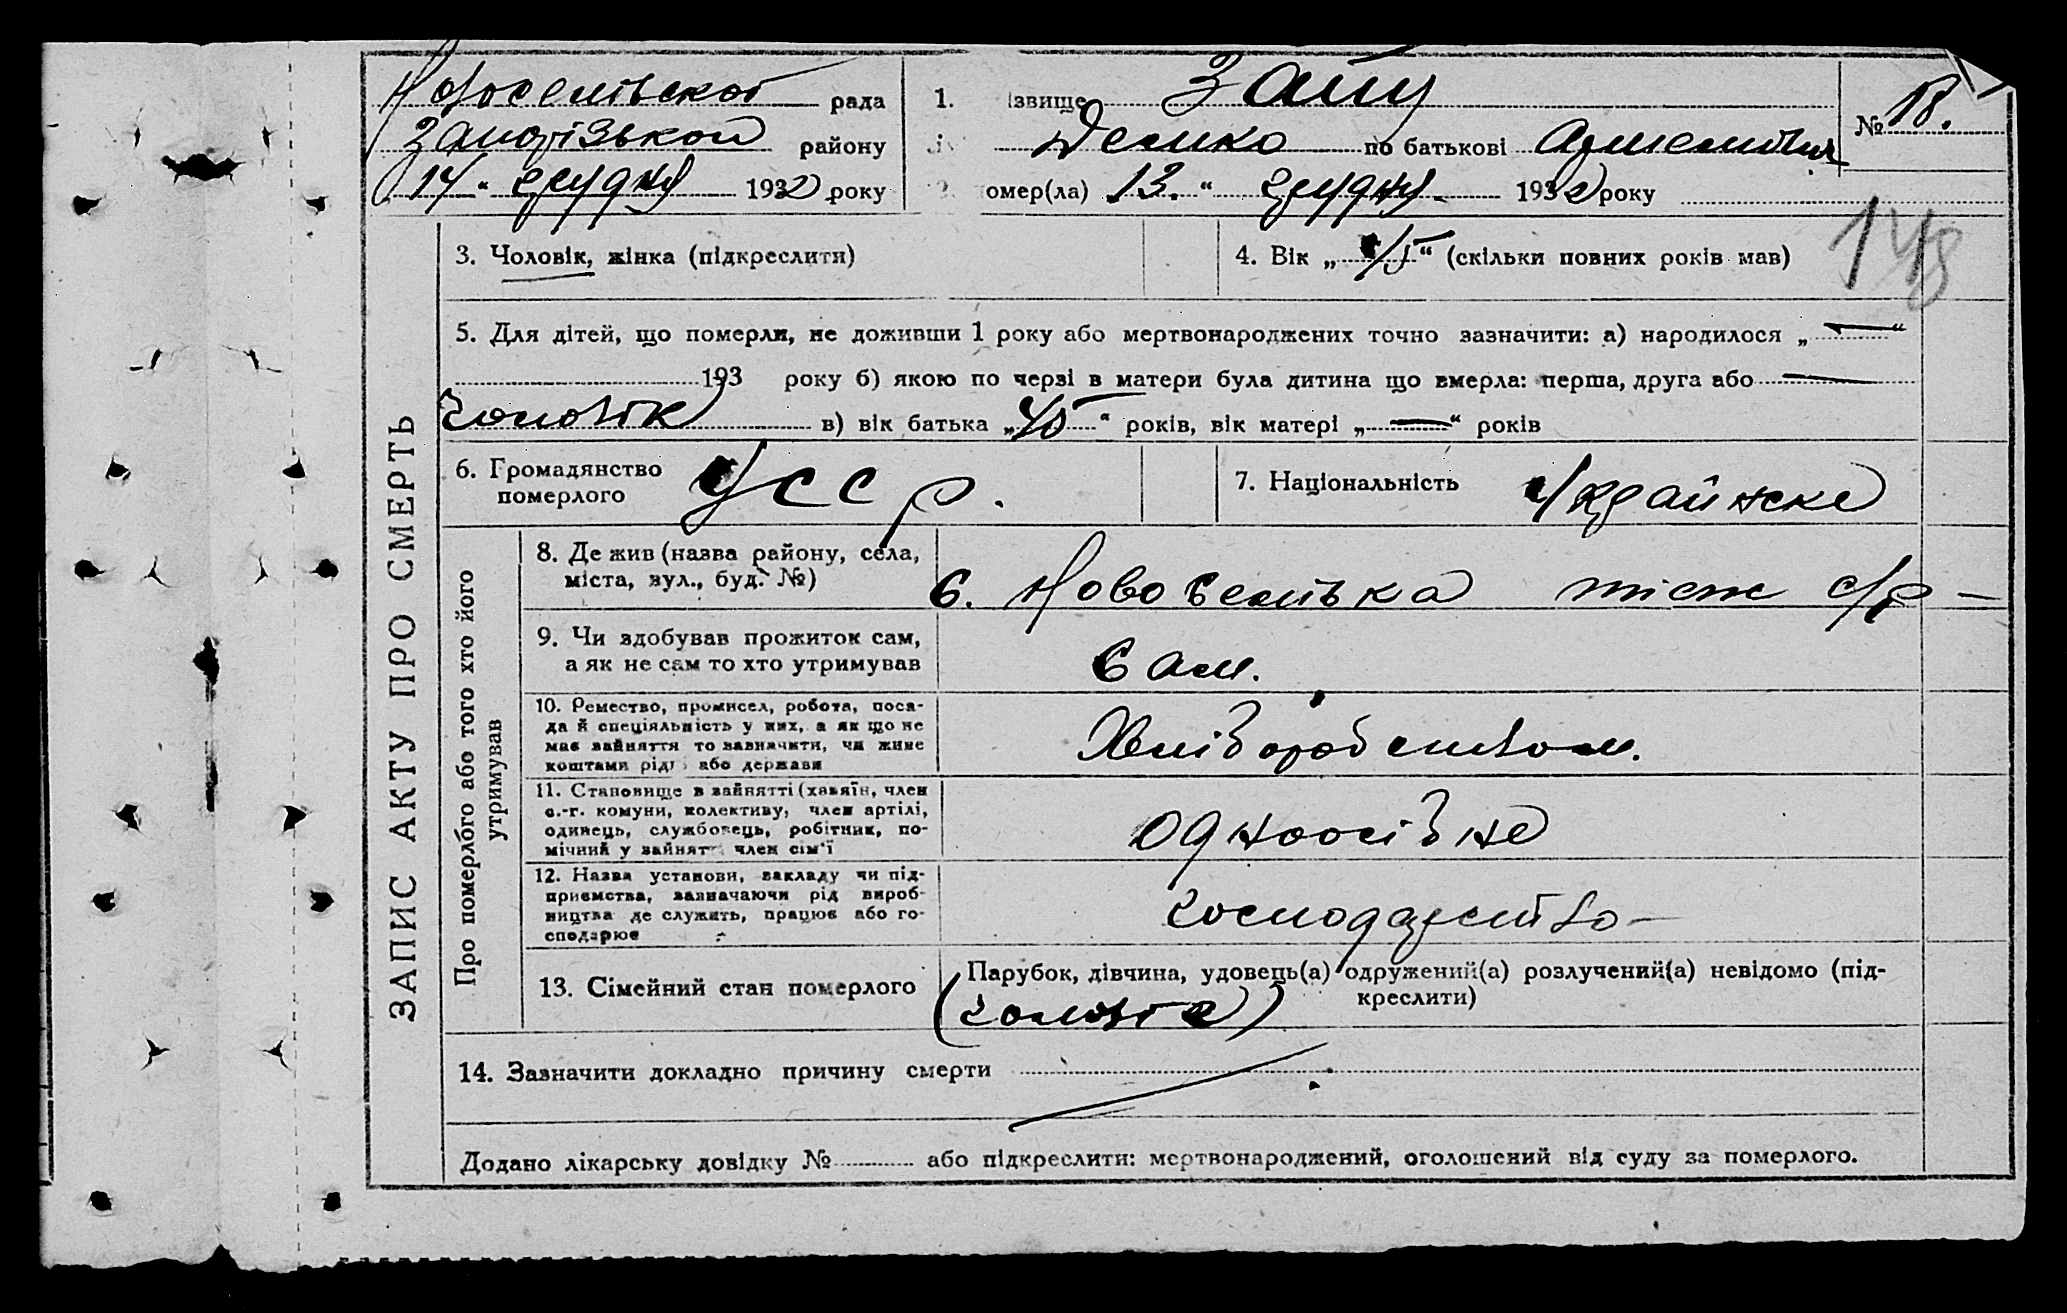 Новоселівської рада
Запорізької району
14 " грудня 1932 року
1. ізвище Заяц
Демко по батькові Артемович
№ 18.
омер(ла) 13 " грудня 1932 року
148
3. Чоловік, жінка (підкреслити)
4. Вік „ 45 “ (скільки повних років мав)
5. Для дітей, що померли, не доживши 1 року або мертвонароджених точно зазначити: а) народилося „ — “
193 року б) якою по черзі в матери була дитина що вмерла: перша, друга або —
чоловік в) вік батька „ 45 “ років, вік матері „ — “ років
6. Громадянство
померлого
УССР.
7. Національність Українске
ЗАПИС АКТУ ПРО СМЕРТЬ
Про померлого або того хто його
утримував
8. Де жив (назва району, села,
міста, вул., буд. №)
с. Новоселівка тієж с/р –
9. Чи здобував прожиток сам,
а як не сам то хто утримував
Сам.
10. Ремество, промисел, робота, поса-
да й спеціяльність у них, а як що не
має зайняття то зазначити, чи живе
коштами рідг або держави
Хліборобством.
11. Становище в зайнятті (хазяїн, член
с.-г. комуни, колективу, член артілі,
одинець, службовець, робітник, по-
мічний у зайнятт член сім'ї
Одноосібне
12. Назва установи, закладу чи під-
приємства, зазначаючи рід вироб-
ництва де служить, працює або го-
сподарює
господарство –
13. Сімейний стан померлого
Парубок, дівчина, удовець(а) одружений(а) розлучений(а) невідомо (під-
креслити)
14. Зазначити докладно причину смерти
Додано лікарську довідку № або підкреслити: мертвонароджений, оголошений від суду за померлого.